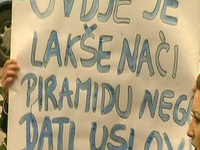 OVDJE JE
LAKŠE NAĆI
PIRAMIDU NEGO
DATI USLOV